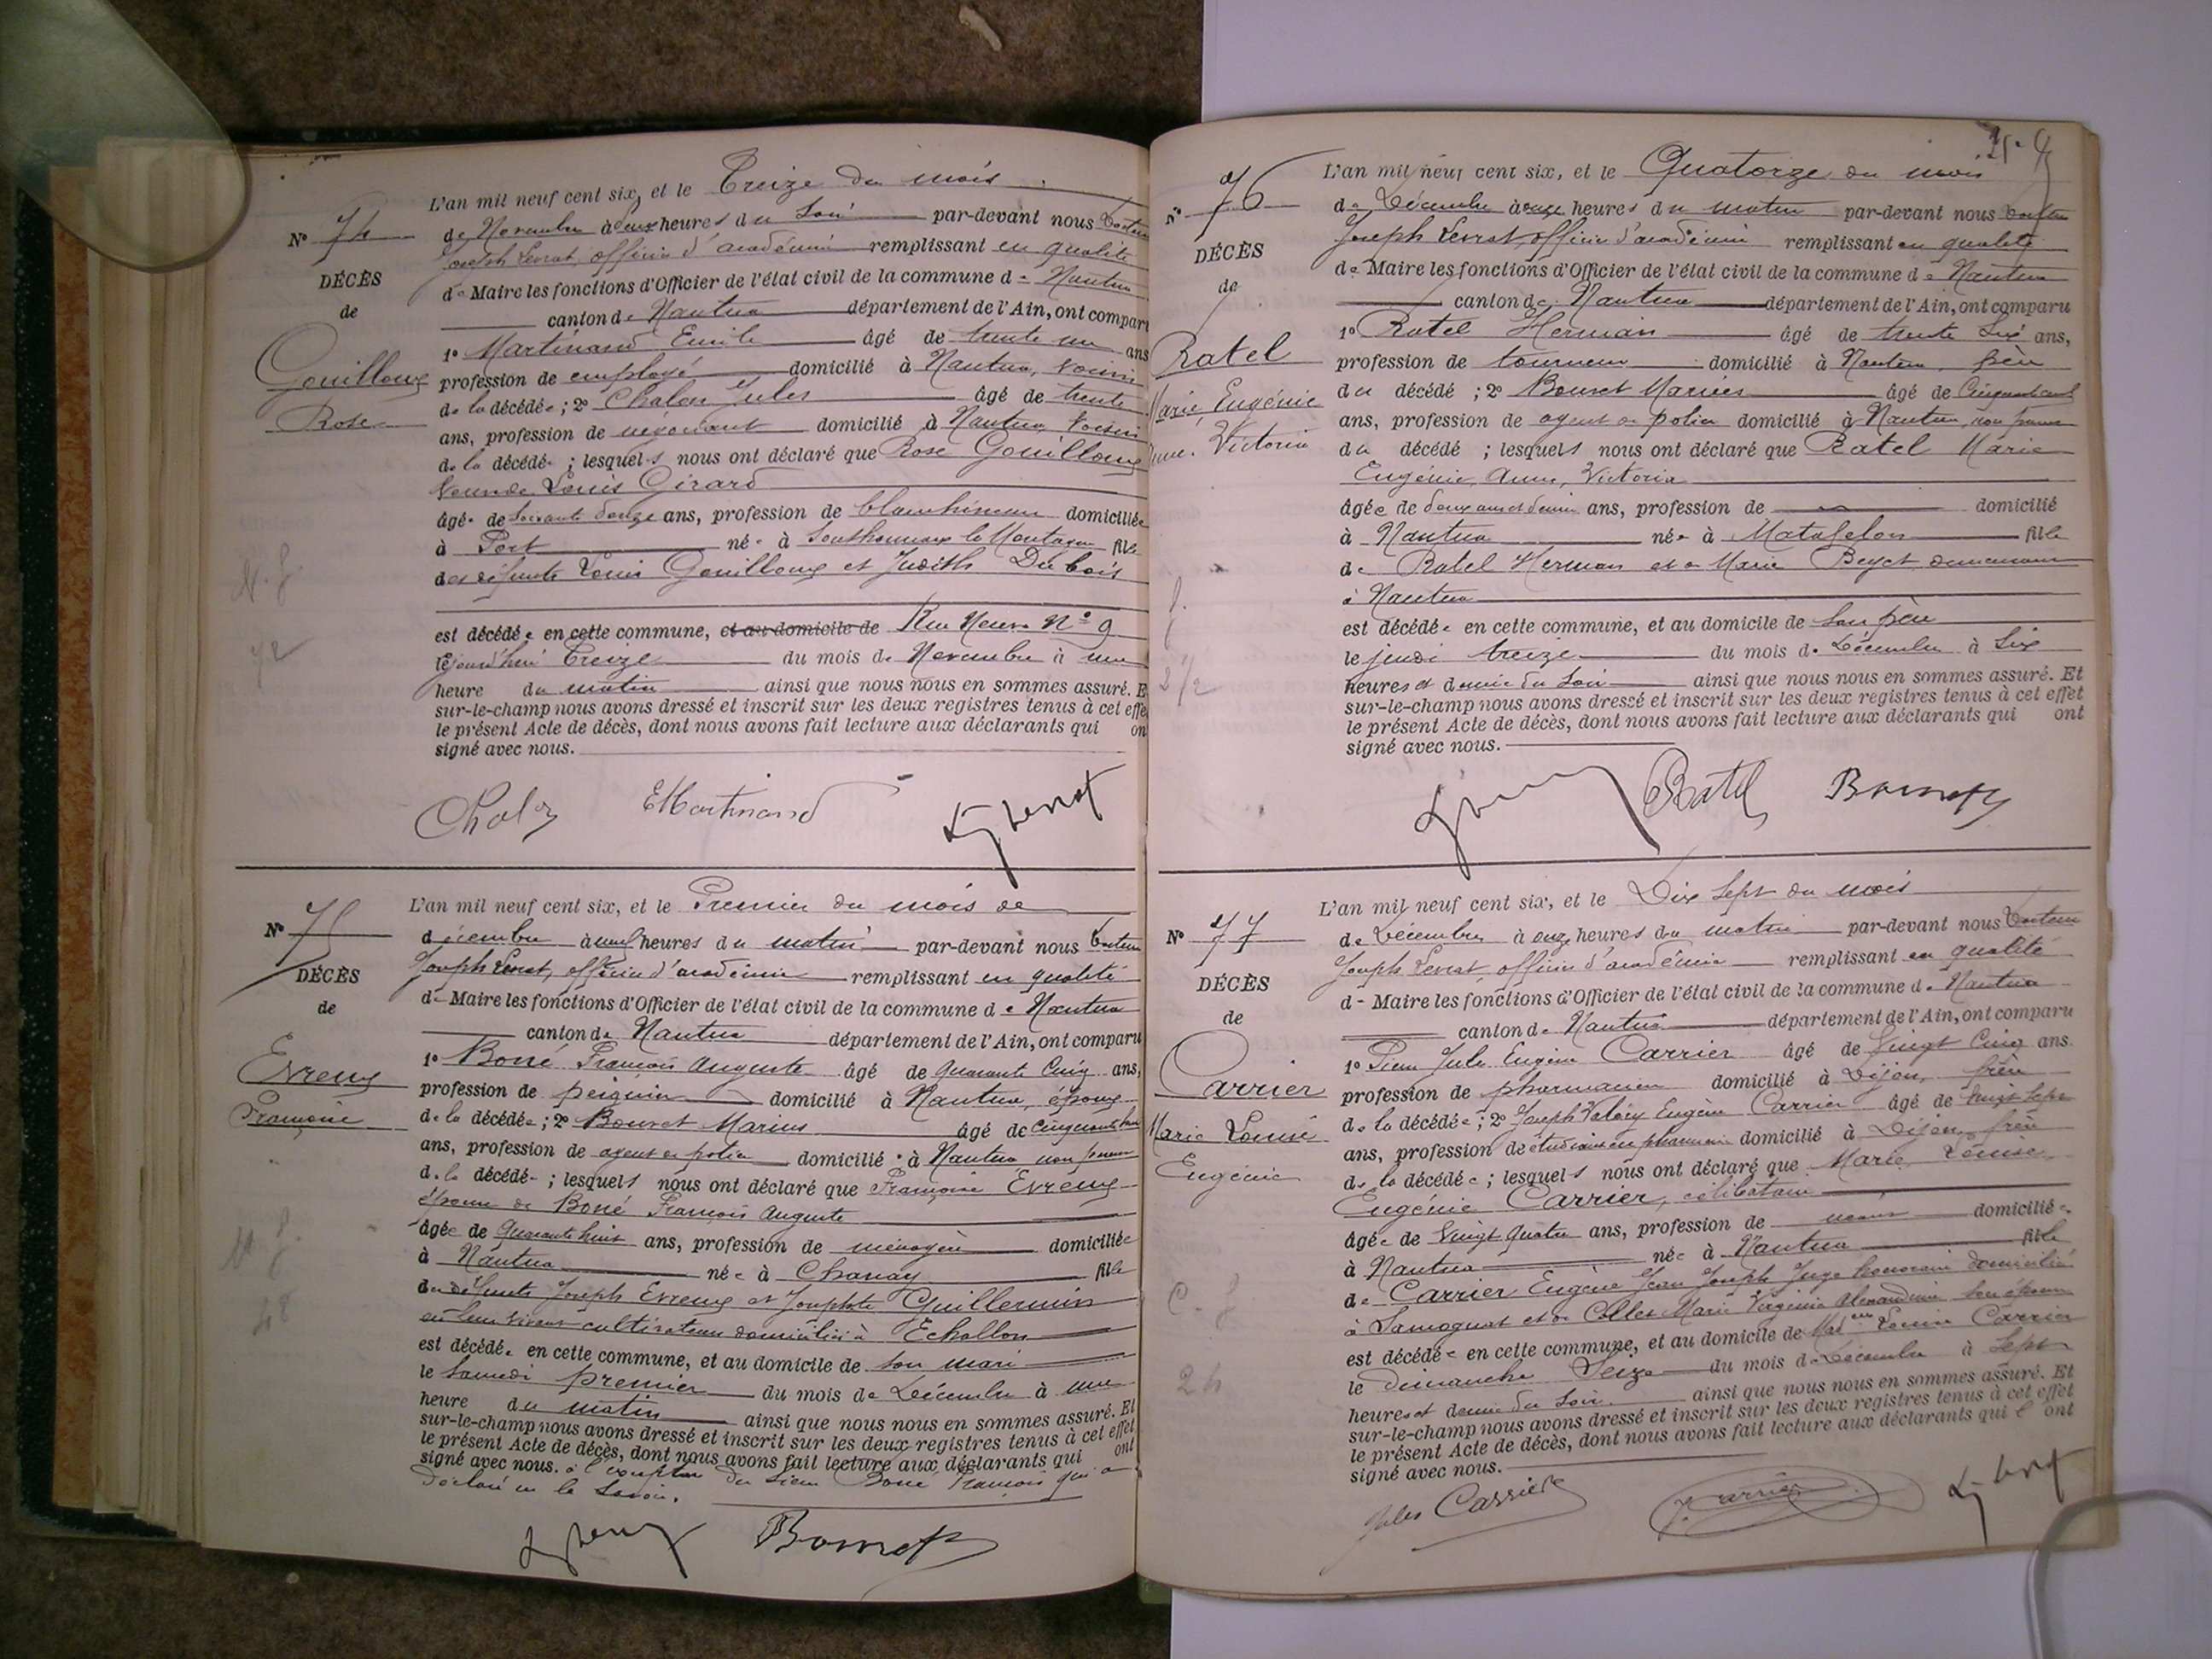 L'an mil neuf cent six, et le Treize du mois
N° 74
de Novembre à deux heures du Soir par-devant nous Docteur
Joseph Levrat, officier d'académie remplissant en qualité
DÉCÈS
de Maire les fonctions d'Officier de l'état civil de la commune de Nantua
de
canton de Nantua département de l'Ain, ont comparu
1° Martinand Emile âgé de trente un ans
Gouilloux
Rose
profession de employé domicilié à Nantua, voisin
de la décédée ; 2° Chalon Jules âgé de trente
ans, profession de négociant domicilié à Nantua voisin
de la décédée ; lesquels nous ont déclaré que Rose Gouilloux
Veuve de Louis Girard
âgée de Soixante douze ans, profession de domiciliée
à Port née à Songthonnax la Montagne fille
des défunts Louis Gouilloux et Judith Dubois
N. f.
72
est décédée en cette commune, et au domicile de Rue Neuve N° 9
lejourd'hui Treize du mois de Novembre à une
heure du matin ainsi que nous nous en sommes assuré. E
sur-le-champ nous avons dressé et inscrit sur les deux registres tenus à cet effe
le présent Acte de décès, dont nous avons fait lecture aux déclarants qui on
signé avec nous.
Chalon EMartinand Levrat
L'an mil neuf cent six, et le Premier du mois de
N° 75
décembre à neuf heures du matin par-devant nous Docteur
Joseph Levrat, officier d'académie remplissant en qualité
DÉCÈS
de Maire les fonctions d'Officier de l'état civil de la commune de Nantua
de
canton de Nantua département de l'Ain, ont comparu
1° Borré François Auguste âgé de Quarante Cinq ans,
Evreux
Françoise
profession de peignier domicilié à Nantua, époux
de la décédée ; 2° Bouvet Marius âgé de
ans, profession de agent de police domicilié à Nantua non parent
de la décédée ; lesquels nous ont déclaré que Françoise Evreux
épouse de Borré François Auguste
âgée de Quarante huit ans, profession de ménagère domiciliée
à Nantua née à Chanay fille
de défunts Joseph Evreux et Josephte Guillermin
en leur vivant cultivateurs domiciliés à Echallon
48
est décédée en cette commune, et au domicile de son mari
le Samedi premier du mois de Décembre à une
heure du matin ainsi que nous nous en sommes assuré. Et
sur-le-champ nous avons dressé et inscrit sur les deux registres tenus à cet effet
le présent Acte de décès, dont nous avons fait lecture aux déclarants qui ont
signé avec nous. à l'exception du Sieur Borré François qui a
déclaré ne le savoir.
Levrat Bouvet
L'an mil neuf cent six, et le Quatorze du mois
N° 76
de Décembre à onze heures du matin par-devant nous Docteur
Joseph Levrat, officier d'académie remplissant en qualité
DÉCÈS
de Maire les fonctions d'Officier de l'état civil de la commune de Nantua
de
canton de Nantua département de l'Ain, ont comparu
1° Ratel Herman âgé de trente Six ans,
Ratel
Marie, Eugénie
Anne. Victoria
profession de tourneur domicilié à Nantua, père
du décédé ; 2° Bouvet Marius âgé de
ans, profession de agent de police domicilié à Nantua, non parent
du décédé ; lesquels nous ont déclaré que Ratel Marie
Eugénie, Anne, Victoria
âgée de deux ans et demi ans, profession de domicilié
à Nantua née à Matafelon fille
de Ratel Herman et de Marie Beyet demeurant
à Nantua
f.
2 1/2
est décédée en cette commune, et au domicile de son père
le jeudi treize du mois de Décembre à Six
heures et demie du Soir ainsi que nous nous en sommes assuré. Et
sur-le-champ nous avons dressé et inscrit sur les deux registres tenus à cet effet
le présent Acte de décès, dont nous avons fait lecture aux déclarants qui ont
signé avec nous.
Levrat Ratel Bouvet
L'an mil neuf cent six, et le Dix Sept du mois
N° 77
de Décembre à onze heures du matin par-devant nous Docteur
Joseph Levrat, officier d'académie remplissant en qualité
DÉCÈS
de Maire les fonctions d'Officier de l'état civil de la commune de Nantua
de
canton de Nantua département de l'Ain, ont comparu
1° Pierre Jules Eugène Carrier âgé de Vingt Cinq ans
Carrier
Marie Louise
Eugénie
profession de pharmacien domicilié à Dijon, frère
de la décédée ; 2° Joseph Valéry Eugène Carrier âgé de Vingt Sept
ans, profession de étudiant en pharmacie domicilié à Dijon, frère
de la décédée ; lesquels nous ont déclaré que Marie, Louise,
Eugénie Carrier, célibataire
âgée de Vingt Quatre ans, profession de néant domiciliée
à Nantua née à Nantua fille
de Carrier Eugène Jean Joseph Juge honoraire domicilié
à Samognat et de Collet Marie Virginie Alexandrine son épouse
C. f.
24
est décédée en cette commune, et au domicile de Louise Carrier
le dimanche Seize du mois de Décembre à Sept
heures et demie du Soir. ainsi que nous nous en sommes assuré. Et
sur-le-champ nous avons dressé et inscrit sur les deux registres tenus à cet effet
le présent Acte de décès, dont nous avons fait lecture aux déclarants qui ont
signé avec nous.
Jules Carrier J. Carrier Levrat